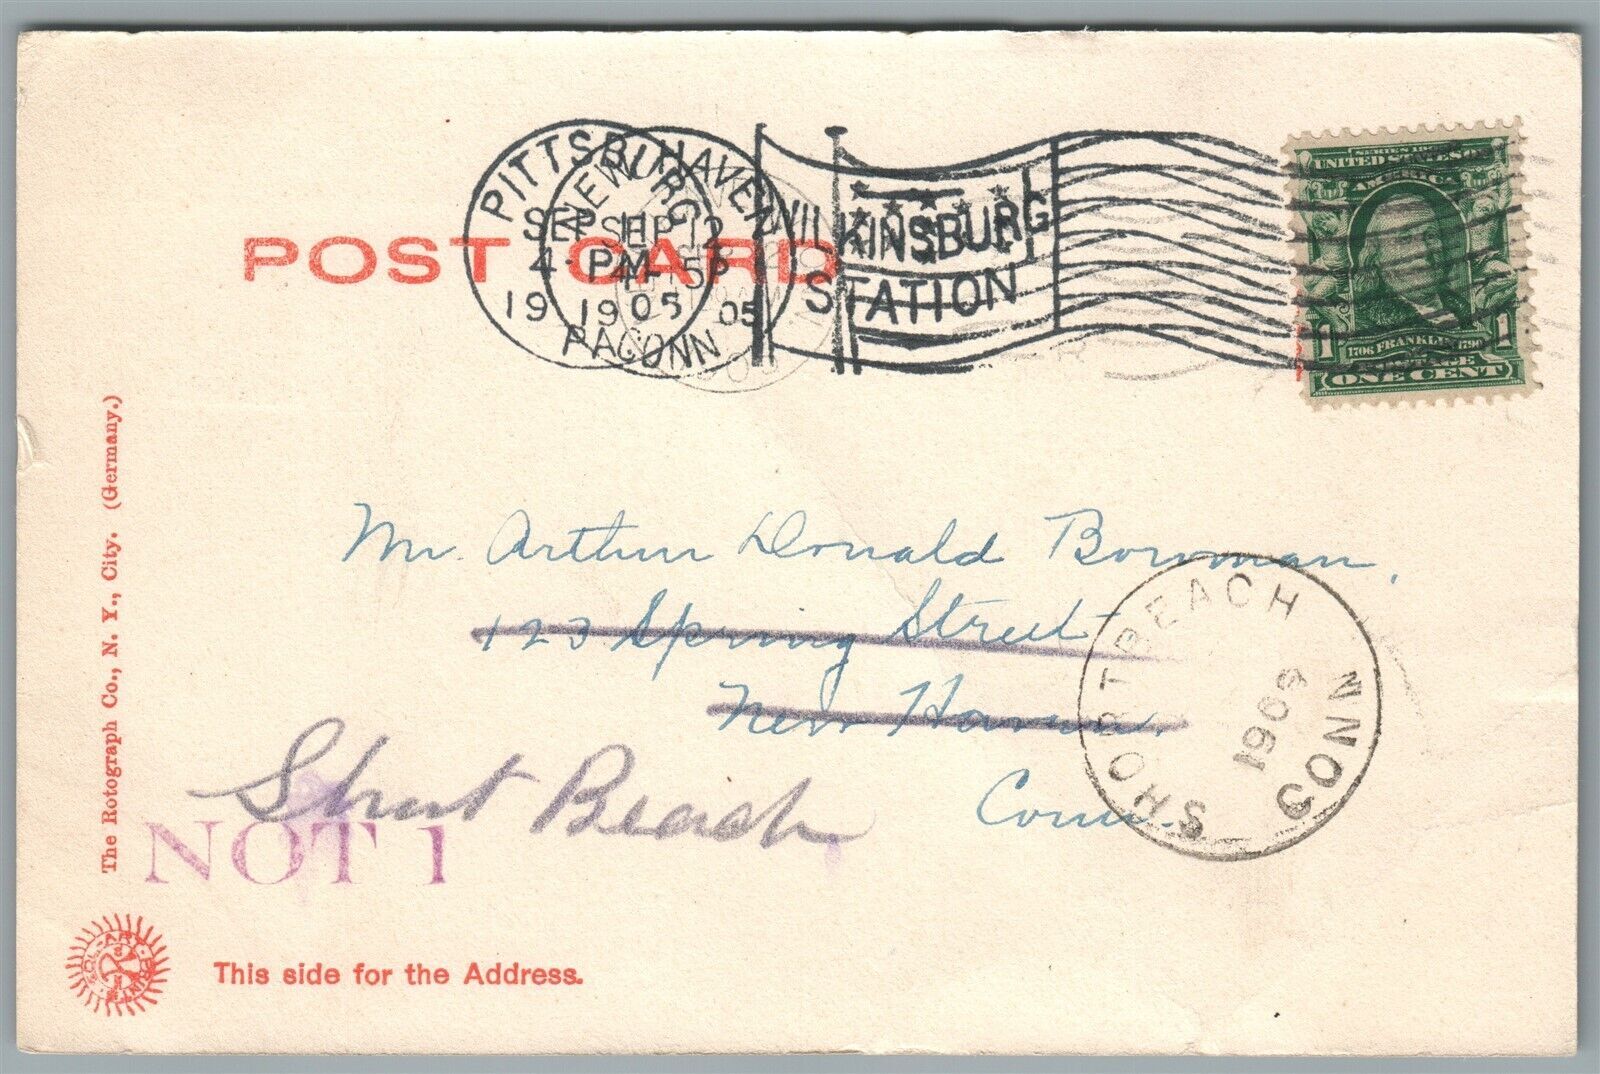 PITTSBURG
SEP 11
4-PM
1905
PA
NEW HAVEN
SEP 12
4-15P
1905
CONN
WILKINSBURG
STATION
SERIES 1902
UNITED STATES OF
AMERICA
1706 FRANKLIN 1790
1 1
ONE CENT
POST CARD
Mr. Arthur Donald Bowman,
123 Spring Street
New Haven.
Conn.
Short Beach
SHORT BEACH
CONN
190
NOT 1
The Rotograph Co., N. Y., City. (Germany.)
SOL-ART PRINTS
This side for the Address.